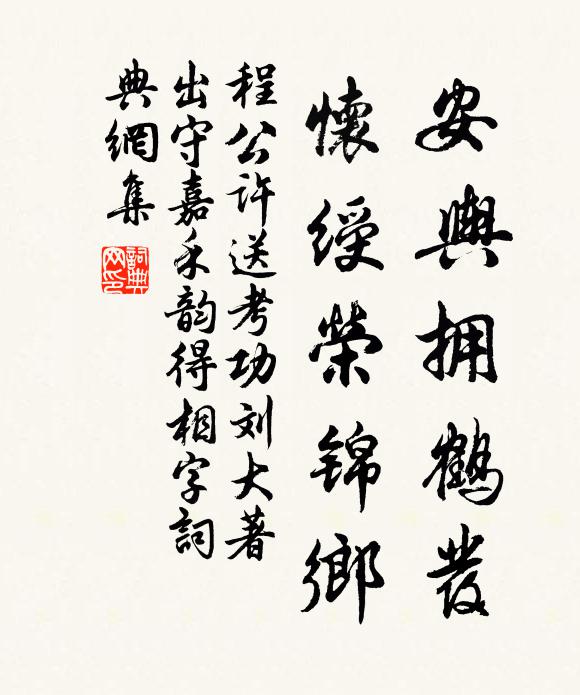 安輿拥鶴發
懷綬榮錦鄉
程公許送考功刘大著
出守嘉禾韵得相字詞
典網集
詞典网印